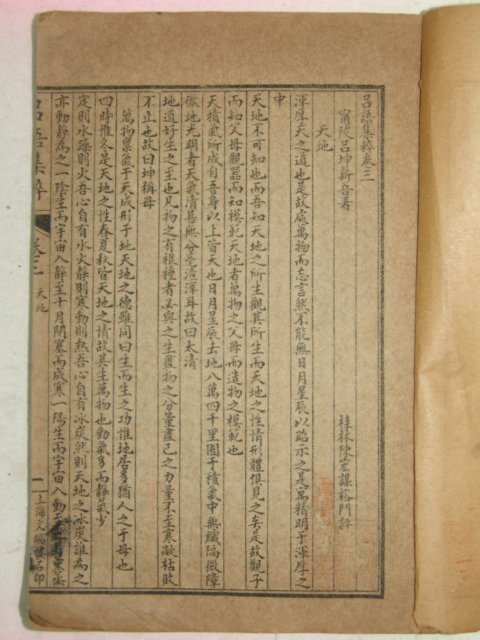 呂語集粹卷三
甯陵呂坤新吾著
桂林陳宏謀榕門評
天地
渾厚天之道也是故處萬物而忘言然不能無日月星辰以昭示之是寓精明于渾厚之
中
天地不可知也而吾知天地之所生觀其所生而天地之性情形體俱見之矣是故觀子
而知父母觀器而知模範天地者萬物之父母而造物之模範也
天積氣所成自吾身以上皆天也日月星辰去地八萬四千里囿于積氣中無纖隔微障
徹地光明者天氣清甚無分毫渣滓耳故曰太清
地道好生之至也凡物之有根種者必與之生盡物之分量盡己之力量不至寒凝枯敗
不止也故曰坤稱母
萬物稟氣于天成形于地天地之德雖同曰生而生之功惟地居多猶人之于母也
四時惟冬是天地之性春夏秋皆天地之情故其生萬物也動氣多而靜氣少
定則水躁則火吾心自有水火靜則寒動則熱吾心自有冰炭然則天地之冰炭誰為之
亦動靜為之一陰生而宇宙入靜至十月閉塞而成寒一陽生而宇宙入動至
呂語集粹
卷三
天地
一
上海文瑞樓石印